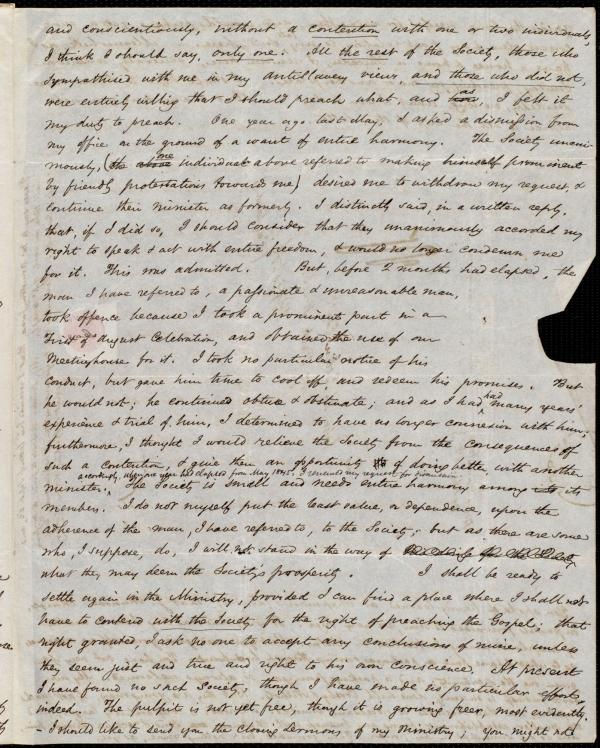 and conscientiously, without a contention with one or two individuals,
I think I should say, only one. All the rest of the Society, those who
sympathised with me in my antislavery views, and those who did not,
were entirely willing that I should preach what, and as, I felt it
my duty to preach. One year ago last May, I asked a dismission from
my office on the ground of a want of entire harmony. The Society unani-
mously, (the one individual above referred to making himself prominent
by friendly protestations towards me) desired me to withdraw my request, &
continue their minister as formerly. I distinctly said, in a written reply,
that, if I did so, I should consider that they unanimously accorded my
right to speak & act with entire freedom, & would no longer condemn me
for it. This was admitted. But, before 2 months had elapsed, the
man I have referred to, a passionate & unreasonable man,
took offence because I took a prominent part in a
First of August Celebration, and obtained the use of our
Meetinghouse for it. I took no particular notice of his
conduct, but gave him time to cool off and redeem his promises. But
he would not; he continued obtuse & obstinate; and as I had had many years'
experience & trial of him, I determined to have no longer connexion with him;
furthermore, I thought I would relieve the Society from the consequences of
such a contention, & give them an opportunity of doing better with another
minister. accordingly, when one year had elapsed from May 1845, I renewed my request for dismission.
The Society is small and needs entire harmony among its
members. I do not myself put the least value, or dependence, upon the
adherence of the man, I have referred to, to the Society; but as there are some
who, I suppose, do, I will not stand in the way of
what they may deem the Society's prosperity. I shall be ready to
settle again in the Ministry, provided I can find a place where I shall not
have to contend with the Society for the right of preaching the Gospel; that
right granted, I ask no one to accept any conclusions of mine, unless
they seem just and true and right to his own Conscience. At present
I have found no such Society, though I have made no particular efforts,
indeed. The pulpit is not yet free, though it is growing freer, most evidently.
- I should like to send you the closing Sermons of my Ministry; you might not